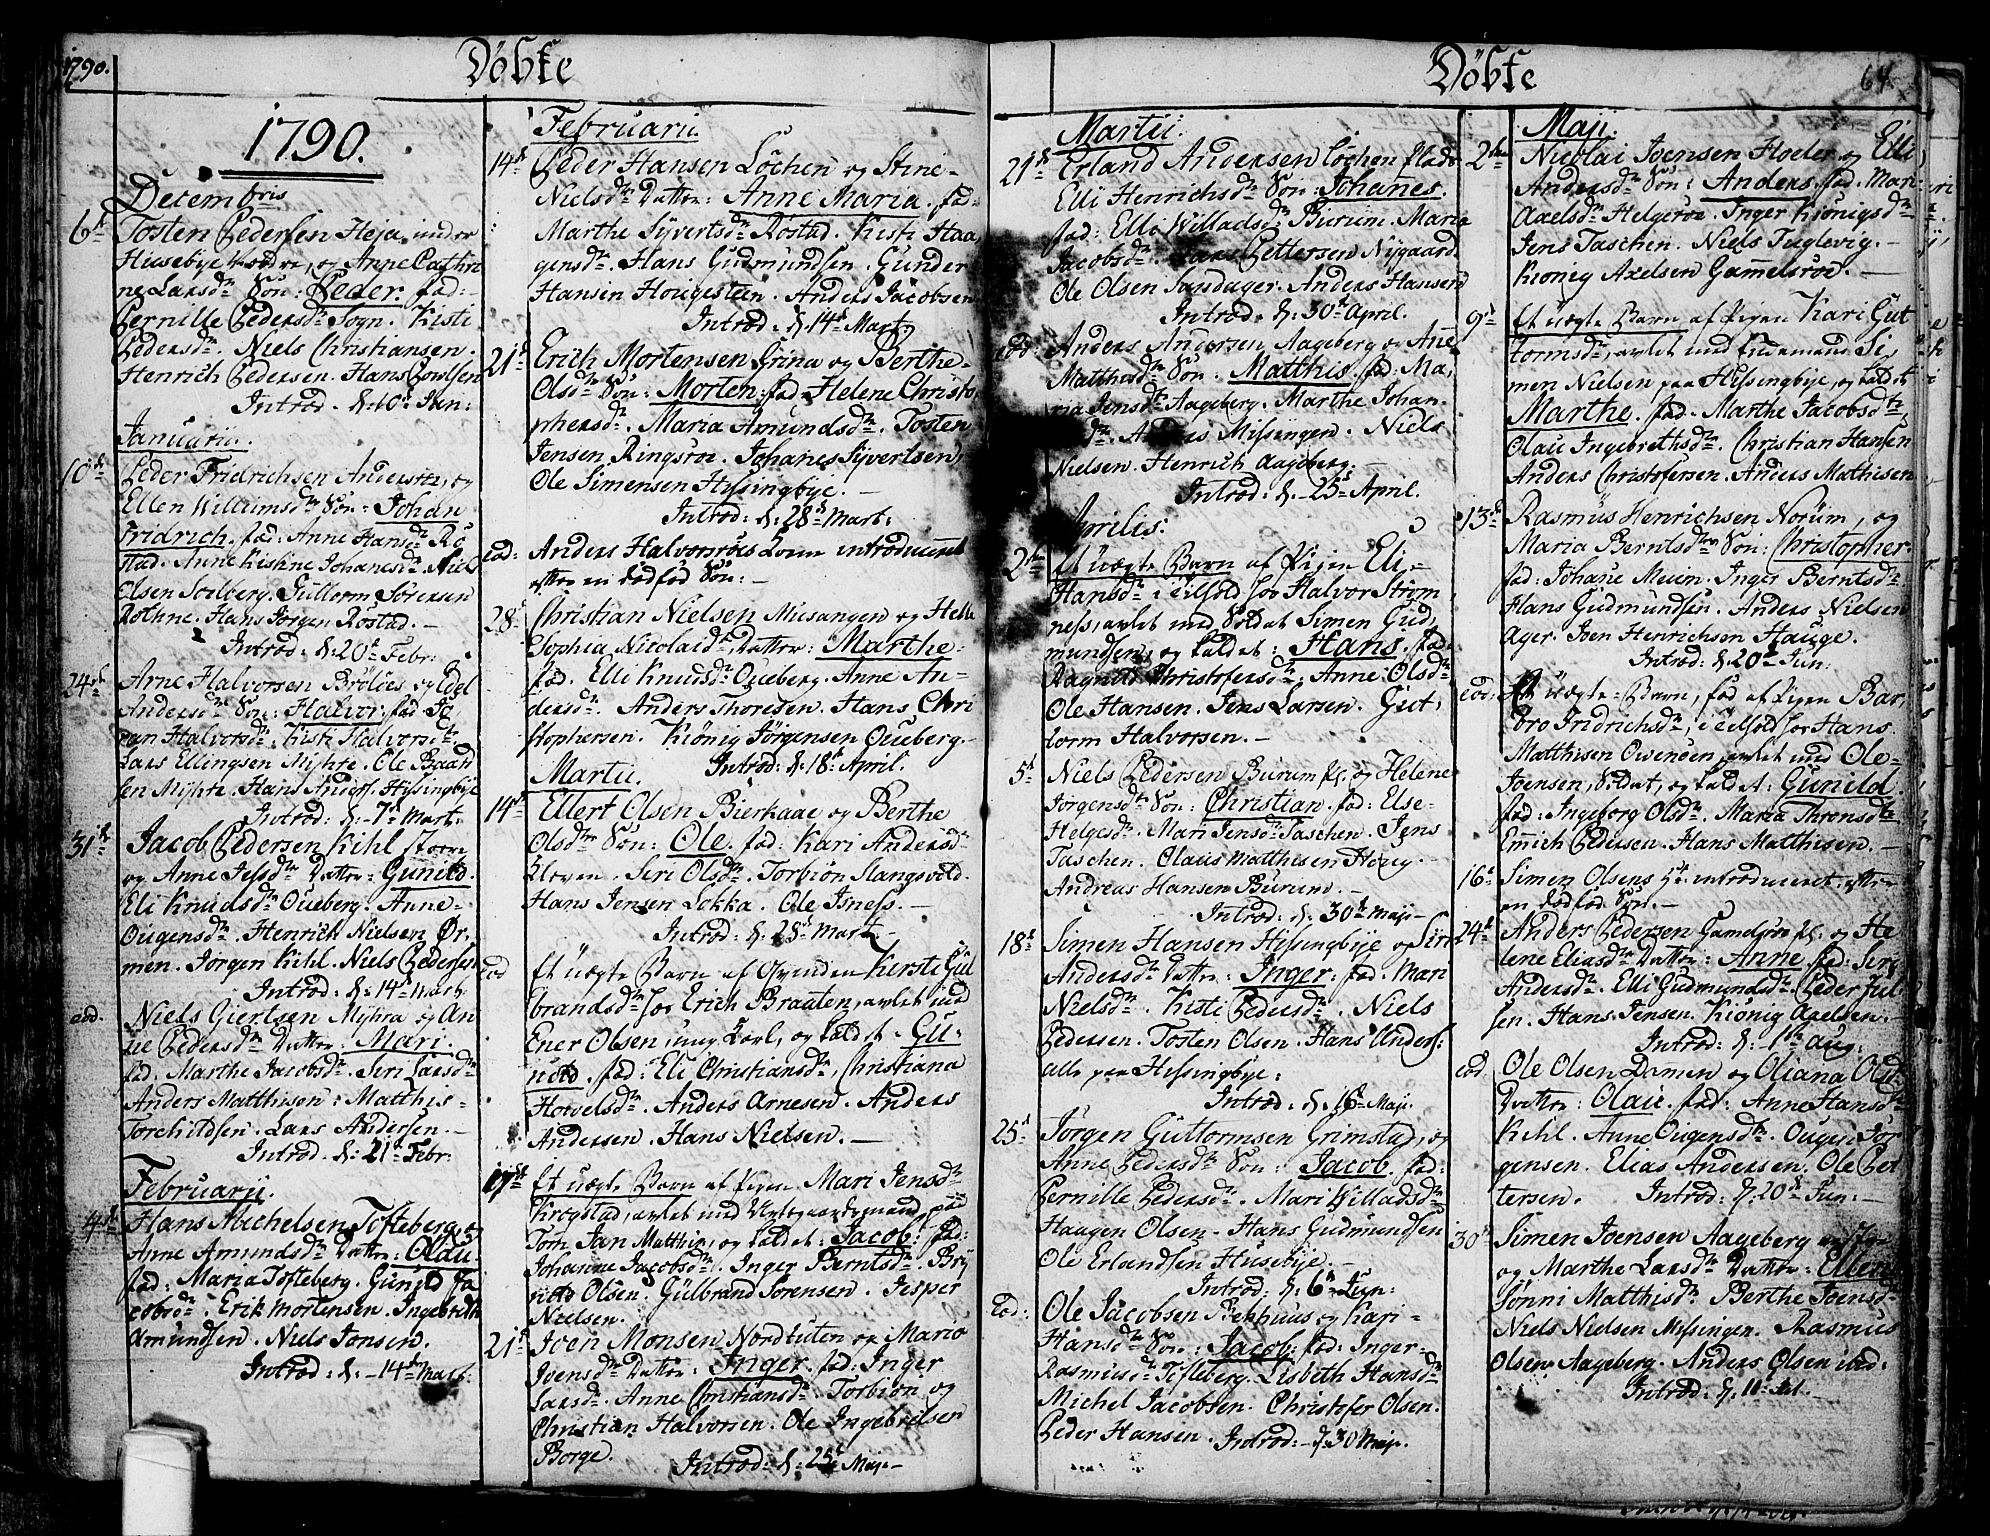 1790.
Döbte
1790.
Decembris
6t Tosten Pedersen Heja, inder
Huusebye Eedre, og Anne Cathri
ne Larsdr Sön: Peder. fad:
Pernille Pedersdr Sogn. Kisti
Pedersdr. Niels Christiansen.
Henrich Pedersen. Hans Povelsen
Introd. d: 10t Jan:
Januarii.
10de Peder Fridrichsen Anderröe, og
Ellen Willumsdr Sön: Johan
Fridrich. fad: Anne Hansdr Rö
stad. Anne Kistine Johanesdr. Niels
Olsen Solberg. Guttorm Sörensen
Rothne. Hans Jörgen Röstad. —
Introd: d: 20t Febr:
24de Arne Halvorsen Brölöes og Edel
Andersdr Sön: Halvor. fad: Jö
ran Halvorsdr, Kisti Halvorsdr
Lars Ellingsen Myhre. Ole Braad
sen Myhre. Hans Anders. Hessingbye
Introd: d: 7t Mart:
31t Jacob Pedersen Kihl Store
og Anne Jensdr Datter: Gunild.
Eli Knudsdr Oueberg. Anne
Ougensdr. Henrich Nielsen Ör
men. Jörgen Kihl. Niels Pedersen
Introd: d: 14t Mart:
eod. Niels Giertsen Myhra og An
ne Pedersdr Datter: Mari.
fad. Marthe Jacobsdr. Siri Larsdr
Anders Matthisen. Matthis
Torchildsen. Lars Andersen. —
Introd. d: 21t Febr:
Februarii.
14de Hans Michelsen Tofteberg og
Anne Amundsdr Datter: Olau.
fad. Maria Tofteberg. Gunild Ja
cobsdr. Erik Mortensen. Ingebreth
Amundsen. Niels Jonsen.
Introd: d: 14de Mart:
Februarii.
14de Peder Hansen Löchen og Stine
Nielsdr Datter: Anne Maria. fad:
Marthe Syvertsdr Röstad. Kisti Haa
gensdr. Hans Gudmundsen. Gunder
Hansen Hougesteen. Anders Jacobsen
Introd: d: 14t Mart:
21de Erich Mortensen Grina og Berthe
Olsdr Sön: Morten. fad: Helene Christo
phersdr. Maria Amundsdr. Tosten
Jensen Ringsröe. Johanes Syvertsen,
Ole Simensen Hessingbye. —
Introd: d: 28t Mart:
eod: Anders Halvorsröes Kone introduceret
efter en dödfød Sön: —
28 Christian Nielsen Missangen og Helle
Sophia Nicolaidr, Datter: Marthe.
fad. Elli Knudsdr Oueberg. Anne An
dersdr. Anders Thoresen. Hans Chri
stophersen. Kiönig Jörgensen Oueberg. —
Introd: d: 18t April.
Martii.
14de Ellert Olsen Bierkaae og Berthe
Olsdr Sön: Ole. fad: Kari Andersdr
Kloven. Siri Olsdr. Torbiön Slangsvold.
Hans Jensen Lokka. Ole Isness. —
Introd: d: 28t Mart: —
eod Et uægte Barn af Qvinden Kersti Gul
brandsdr hos Erich Braaten, avlet med
Ener Olsen ung Karl, og kaldet. Gu
nild. fad: Eli Christiansdr, Christiana
Hovelsdr. Anders Arnesen. Anders
Andersen. Hans Nielsen. —
19de Et uægte Barn af Pigen Mari Jensdr
Krogstad, avlet med paa
Tom Jan Matthis, og kaldet: Jacob. fad:
Johanne Jacobsdr. Inger Berntsdr. Bry
nild Olsen. Gulbrand Sörensen. Jesper
Nielsen.
21t Joen Monsen Nordtuten og Maria
Joensdr Datter: Inger. fad: Inger
Larsdr. Anne Christiansdr. Torbiön og
Christian Halvorsen. Ole Ingebretsen
Borge. Introd: d: 25t Maji —
Döbte
64.
Martii.
21de Erland Andersen Löchen Plads
Elli Henrichsdr Sön: Johanes.
fad: Elli Willadsdr Burum. Maria
Jacobsdr. Hans Pettersen Nygaard.
Ole Olsen Sandager. Anders Hansen
Introd: d: 30t April.
eod Anders Andersen Aageberg og Ane
Matthisdr Sön: Matthis. fad: Ma
ria Jensdr Aageberg. Marthe Johan
Anders Missingen. Niels
Nielsen. Henrich Aageberg. —
Introd: d: 25t April.
Aprilis:
2den Et uægte Barn af Pigen Eli
Hansdr i Tilhold hos Halvor Ström
ness, avlet med Soldat Simen Gud
mundsen, og kaldet: Hans. fad:
Ragnild Christofersdr. Anne Olsdr
Ole Hansen. Jens Larsen. Gut
torm Halvorsen. —
5t Niels Pedersen Burum pl. og Helene
Jörgensdr Sön: Christian. fad: Else
Helgesdr. Mari Jensdr Taschen. Jens
Taschen. Olaus Matthesen Houg.
Andreas Hansen Burund. —
Introd: d: 30t Maji —
18t Simen Hansen Hessingbye og Siri
Andersdr Datter: Inger. fad: Mari
Nielsdr. Kisti Pedersdr. Niels
Pedersen. Tosten Olsen. Hans Anders:
alle paa Hessingbye:
Introd: d: 16t Maji.
25t Jörgen Guttormsen Grimstad, og
Anne Pedersdr Sön: Jacob. fad:
Pernille Pedersdr. Mari Willadsdr
Haagen Olsen. Hans Gudmundsen
Ole Erlandsen Husebye. —
Introd: d: 6t Jun:
Eod: Ole Jacobsen Bekhuus og Kari
Hansdr Sön: Jacob: fad: Inger
Rasmusdr Tofteberg. Lisbeth Hansdr
Michel Jacobsen. Christofer Olsen.
Peder Hansen. Introd: d: 30 Maji.
Maji.
2den Nicolai Joensen Floder og Elli
Andersdr Sön: Anders. fad. Mari
Axelsdr Helgeröe. Inger Kiönigsdr
Jens Taschen. Niels Fuglevig. —
Kiönig Axelsen Gamelsröe. —
9de Et uægte Barn af Pigen Kari Gut
tormsdr, avlet med Enkemand Si
men Nielsen paa Hessingbye, og kaldet
Marthe. fad: Marthe Jacobsdr,
Olau Ingebrethsdr. Christian Hansen
Anders Christofersen. Anders Mathisen
13de Rasmus Henrichsen Norum, og
Maria Berntsdr Sön: Christopher.
fad: Johane Meum. Inger Berntsdr
Hans Gudmundsen. Anders Nielsen
Ager. Joen Henrichsen Hauge.
Introd: d: 20t Jun.
eod: Et uægte Barn, fød af Pigen Bar
bro Fridrichsdr, i Tilhold hos Hans
Matthisen Oisenöen, avlet med Ole
Joensen, Soldat, og kaldet: Gunild.
fad: Ingeborg Olsdr. Maria Thronsdr
Emmich Pedersen. Hans Matthisen. —
16t Simen Olsens Hr. introduceret efter
en dödfød Sön. —
24t Anders Pedersen Gamelsröe pl. og He
lene Eliasdr Datter: Anne. fad: Siri
Andersdr. Elli Gudmundsdr. Peder Jul
sen. Hans Jensen. Kiönig Axelsen. —
Introd: d: 1ste Aug:
eod. Ole Olsen Damen og Oliana Olsdr
Datter: Olau. fad: Anne Hansdr
Kihl. Anne Ougensdr. Ougen Jör
gensen. Elias Andersen. Ole Pet
tersen. Introd: d: 20t Jun: —
30t Simen Joensen Aageberg
og Marthe Larsdr Datter: Ellen
Jönni Matthisdr Berthe Joensdr
Niels Nielsen Missingen. Rasmus
Olsen Aageberg. Anders Olsen ibid:
Introd: d: 11t Jul. —